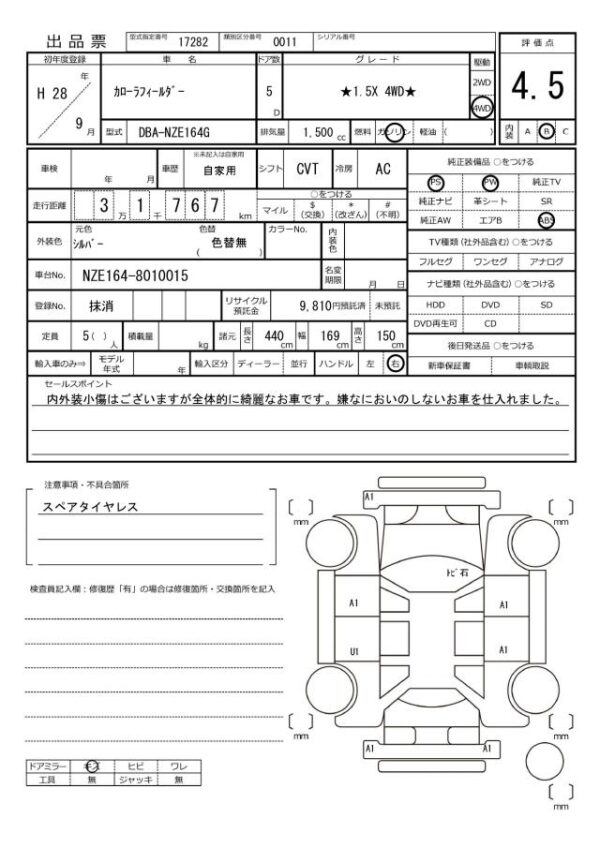 出品票 型式指定番号 17282 類別区分番号 0011 シリアル番号
評価点
初年度登録 車名 ドア数 グレード 駆動
H 28 年 9 月 カローラフィールダー 5 D ★1.5X 4WD★ 2WD 4WD
4.5
型式 DBA-NZE164G 排気量 1,500 cc 燃料 ガソリン 軽油 ( ) 内装 A B C
車検 年 月 車歴 ※未記入は自家用 自家用 シフト CVT 冷房 AC
純正装備品 ○をつける
PS PW 純正TV
純正ナビ 革シート SR
純正AW エアB ABS
走行距離 3 万 1 千 7 6 7 km
○をつける
マイル $ (交換) * (改ざん) # (不明)
外装色 元色 シルバー 色替 色替無 ( ) カラーNo. 内装色
TV種類 (社外品含む) ○をつける
フルセグ ワンセグ アナログ
車台No. NZE164-8010015 名変期限 月 日
ナビ種類 (社外品含む) ○をつける
HDD DVD SD
DVD再生可 CD
登録No. 抹消 リサイクル預託金 9,810円預託済 未預託
定員 5 ( ) 人 積載量 kg 諸元 長さ 440 cm 幅 169 cm 高さ 150 cm
後日発送品 ○をつける
新車保証書 車輌取説
輸入車のみ⇒ モデル年式 年 輸入区分 ディーラー 並行 ハンドル 左 右
セールスポイント
内外装小傷はございますが全体的に綺麗なお車です。嫌なにおいのしないお車を仕入れました。
注意事項・不具合箇所
スペアタイヤレス
検査員記入欄：修復歴「有」の場合は修復箇所・交換箇所を記入
A1
[ ] mm
[ ] mm
トビ石
A1 A1
U1 A1
[ ] mm
[ ] mm
A1 A1
[ ] mm
ドアミラー キズ ヒビ ワレ
工具 無 ジャッキ 無